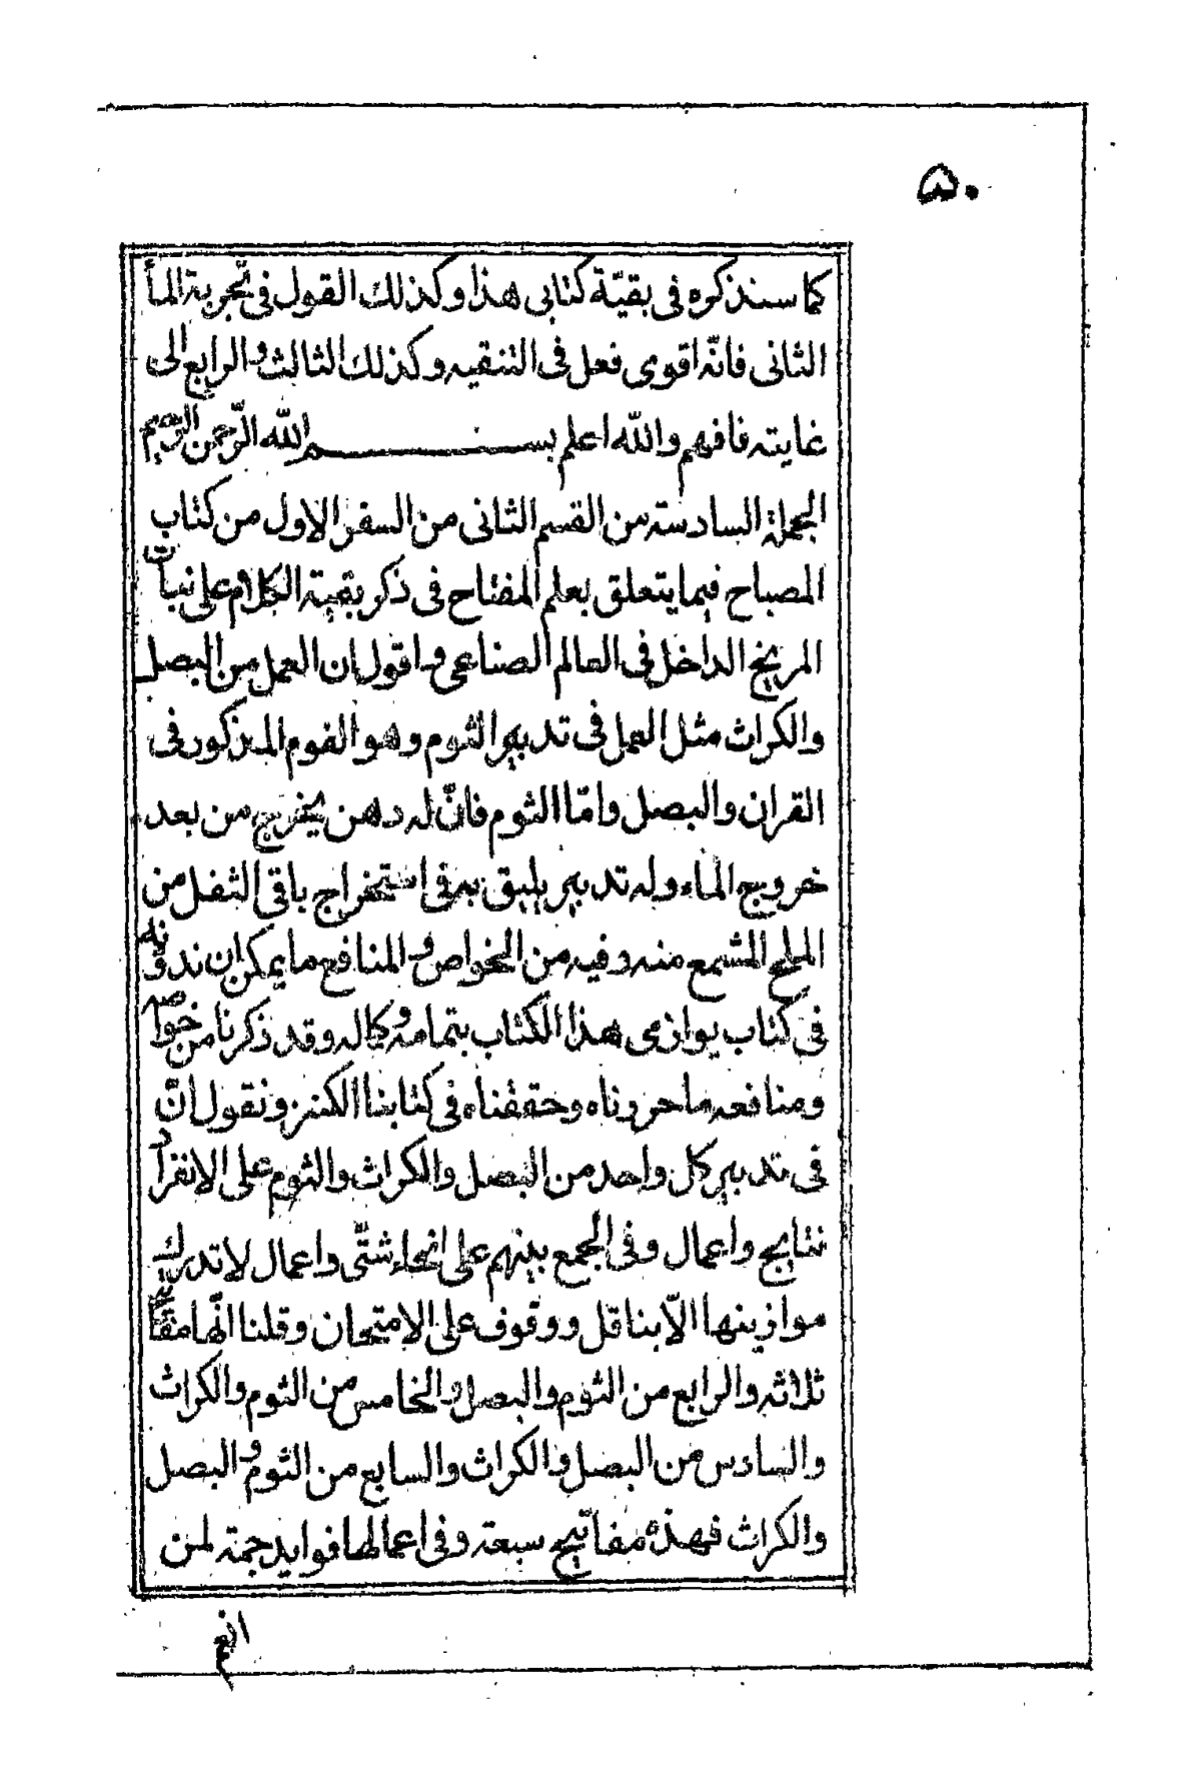 ٥٠
كما سنذكره فى بقيّة كتابى هذا وكذلك القول فى تجربة الماء
الثانى فانّه اقوى فعل فى التنقيه وكذلك الثالث والرابع الى
غايته فافهم والله اعلم بســـم الله الرّحمن الرّحيم
الجملة السادسته من القسم الثانى من السفر الاول من كتاب
المصباح فيما يتعلق بعلم المفتاح فى ذكر بقيته الكلام على نبات
المريخ الداخل فى العالم الصناعى واقول ان العمل من البصل
والكراث مثل العمل فى تدبير الثوم وهو الفوم المذكور فى
القران والبصل وامّا الثوم فانّ له دهن يخرج من بعد
خروج الماء وله تدبير يليق به فى استخراج باقى الثفل من
الملح المشمع منه وفيه من الخواص والمنافع ما يمكن ان ندونه
فى كتاب يوازى هذا الكتاب بتمامه وكماله وقد ذكرنا من خواصه
ومنافعه ما حررناه وحققناه فى كتابنا الكنز ونقول انّ
فى تدبير كل واحد من البصل والكراث والثوم على الانفراد
نتايج واعمال وفى الجمع بينهم على انحاء شتّى واعمال لا تدرك
موازينها الّا بناقل ووقوف على الامتحان وقلنا انّها مفاتيح
ثلاثه والرابع من الثوم والبصل والخامس من الثوم والكراث
والسادس من البصل والكراث والسابع من الثوم والبصل
والكراث فهذه مفاتيح سبعته وفى اعمالها فوايد جمته لمن
انعم